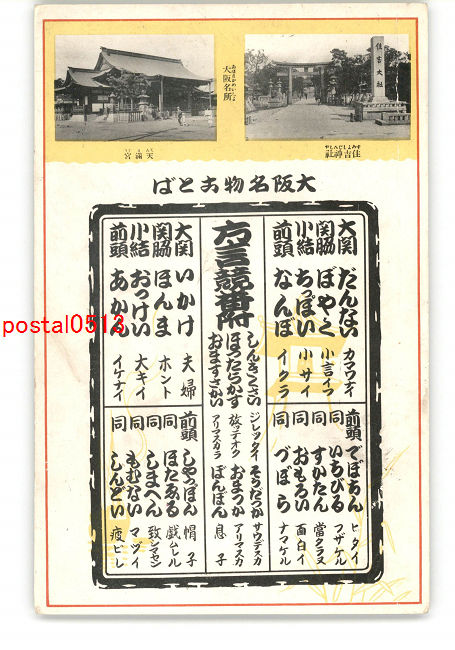 大阪名所
おほさかめいしよ
天満宮
住吉神社
すみよしじんしや
住吉大社
大阪名物ことば
方言競番附
大関 だんない カマワナイ
関脇 ぼやく 小言イフ
小結 ちぼい 小サイ
前頭 なんぼ イクラ
前頭 でぼちん ヒタイ
同 いちびる フザケル
同 すかたん 當タラヌ
同 おもろい 面白イ
同 づぼら ナマケル
しんきくさい ジレツタイ
ほつたらかす 放ツテオク
おますさかい アリマスカラ
そうだつか サウデスカ
おまつか アリマスカ
ぼんぼん 息子
大関 いかけ 夫婦
関脇 ほんま ホント
小結 おつけい 大キイ
前頭 あかん イケナイ
前頭 しやつぽん 帽子
同 ほたゑる 戯ムレル
同 しまへん 致シマセン
同 もむない マヅイ
同 しんどい 疲ビレ
postal0513